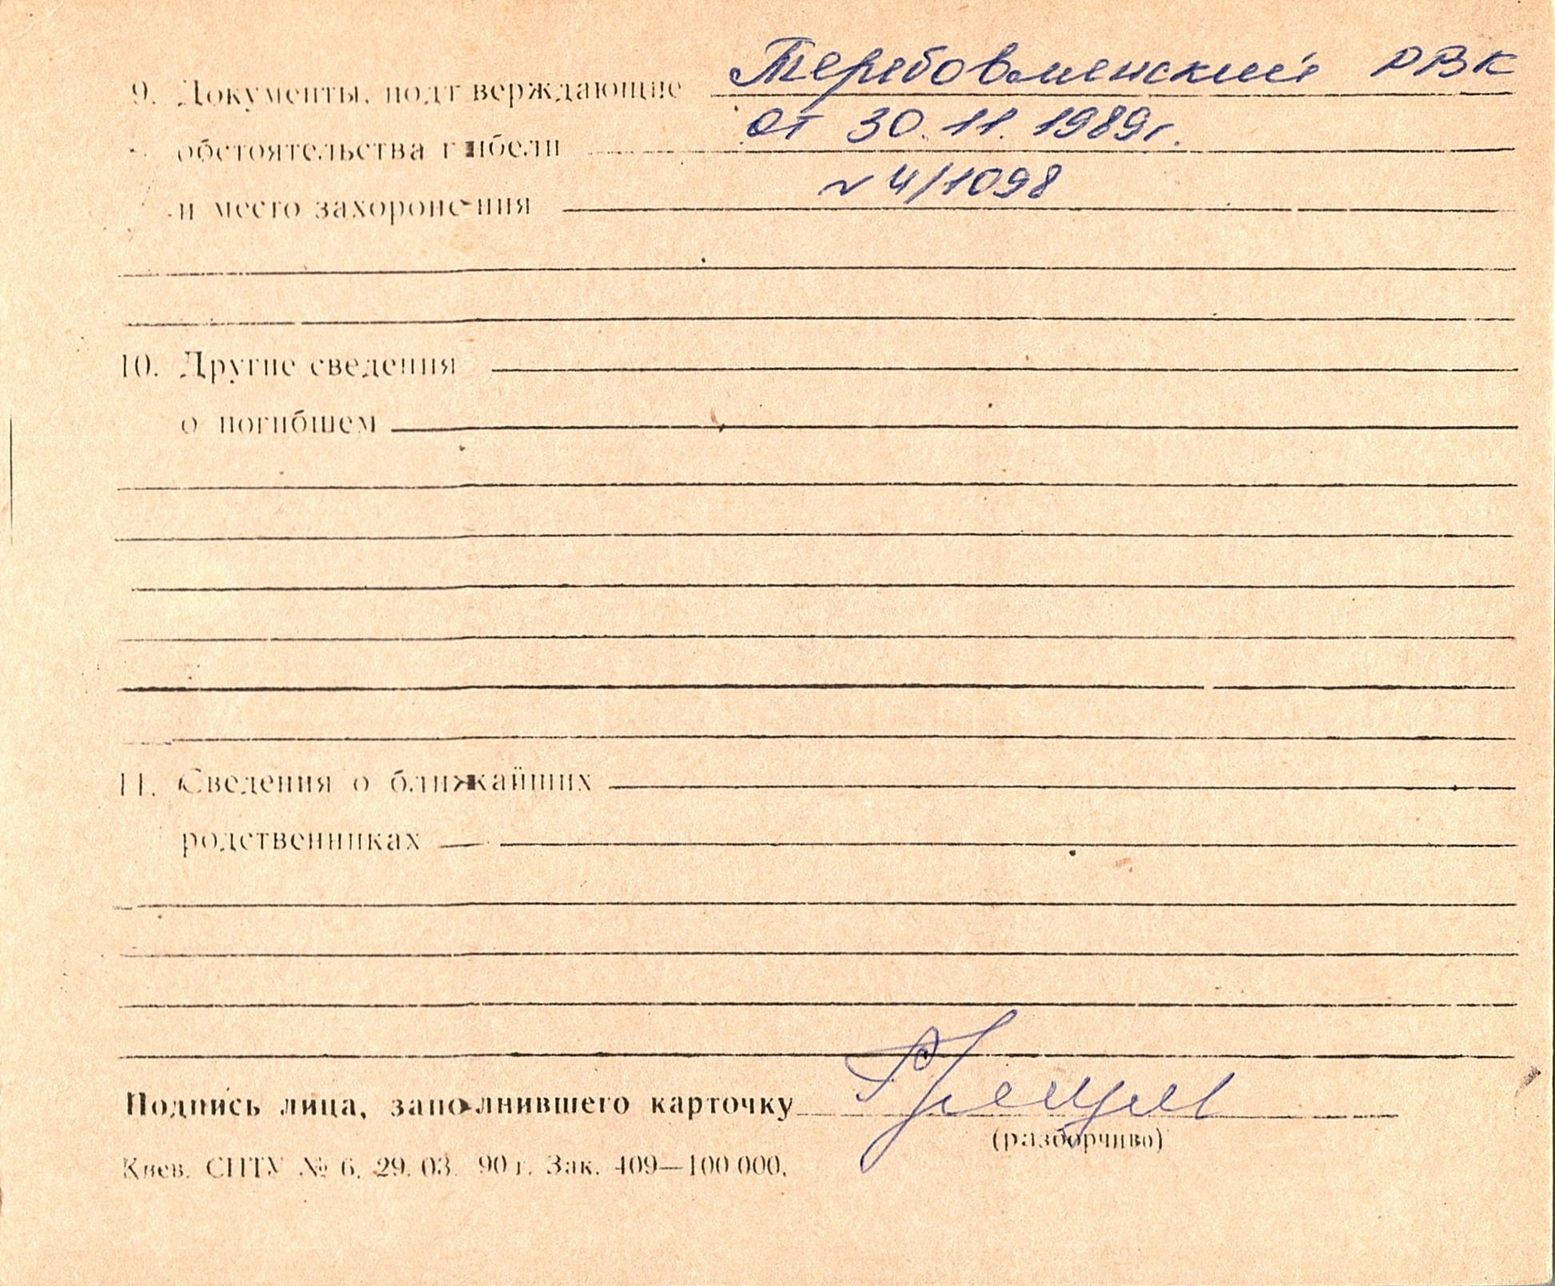 9. Документы, подтверждающие Теребовлянский РВК
обстоятельства гибели от 30.11.1989г.
и место захоронения № 4/1098
10. Другие сведения
о погибшем
11. Сведения о ближайших
родственниках
Подпись лица, заполнившего карточку
(разборчиво)
Киев. СПТУ № 6. 29.03. 90 г. Зак. 409—100 000.